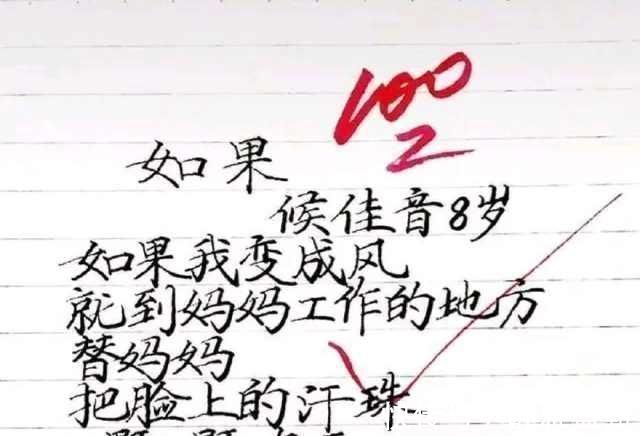 100
2
如果
候佳音8岁
如果我变成风
就到妈妈工作的地方
替妈妈
把脸上的汗珠